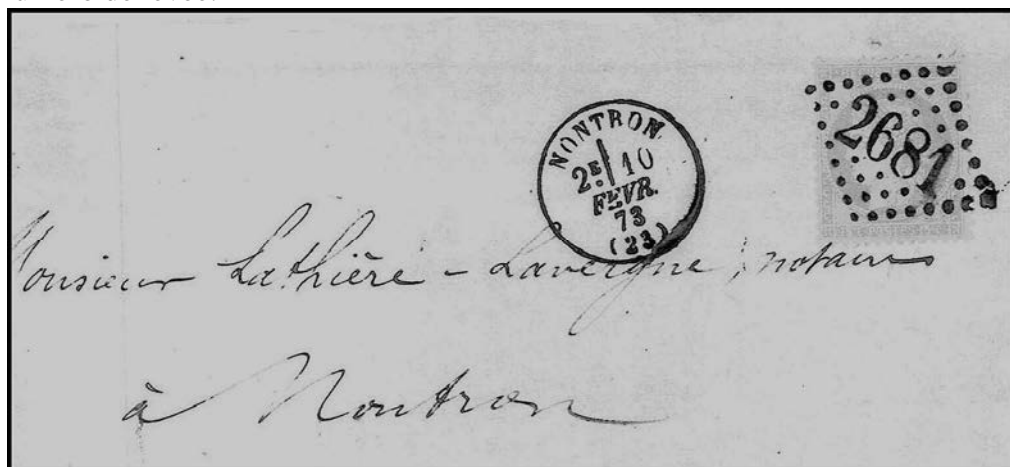 NONTRON.
2E 10
FEVR.
73
(23)
2681
Monsieur Lathière - Lavergne, notaire
à Nontron